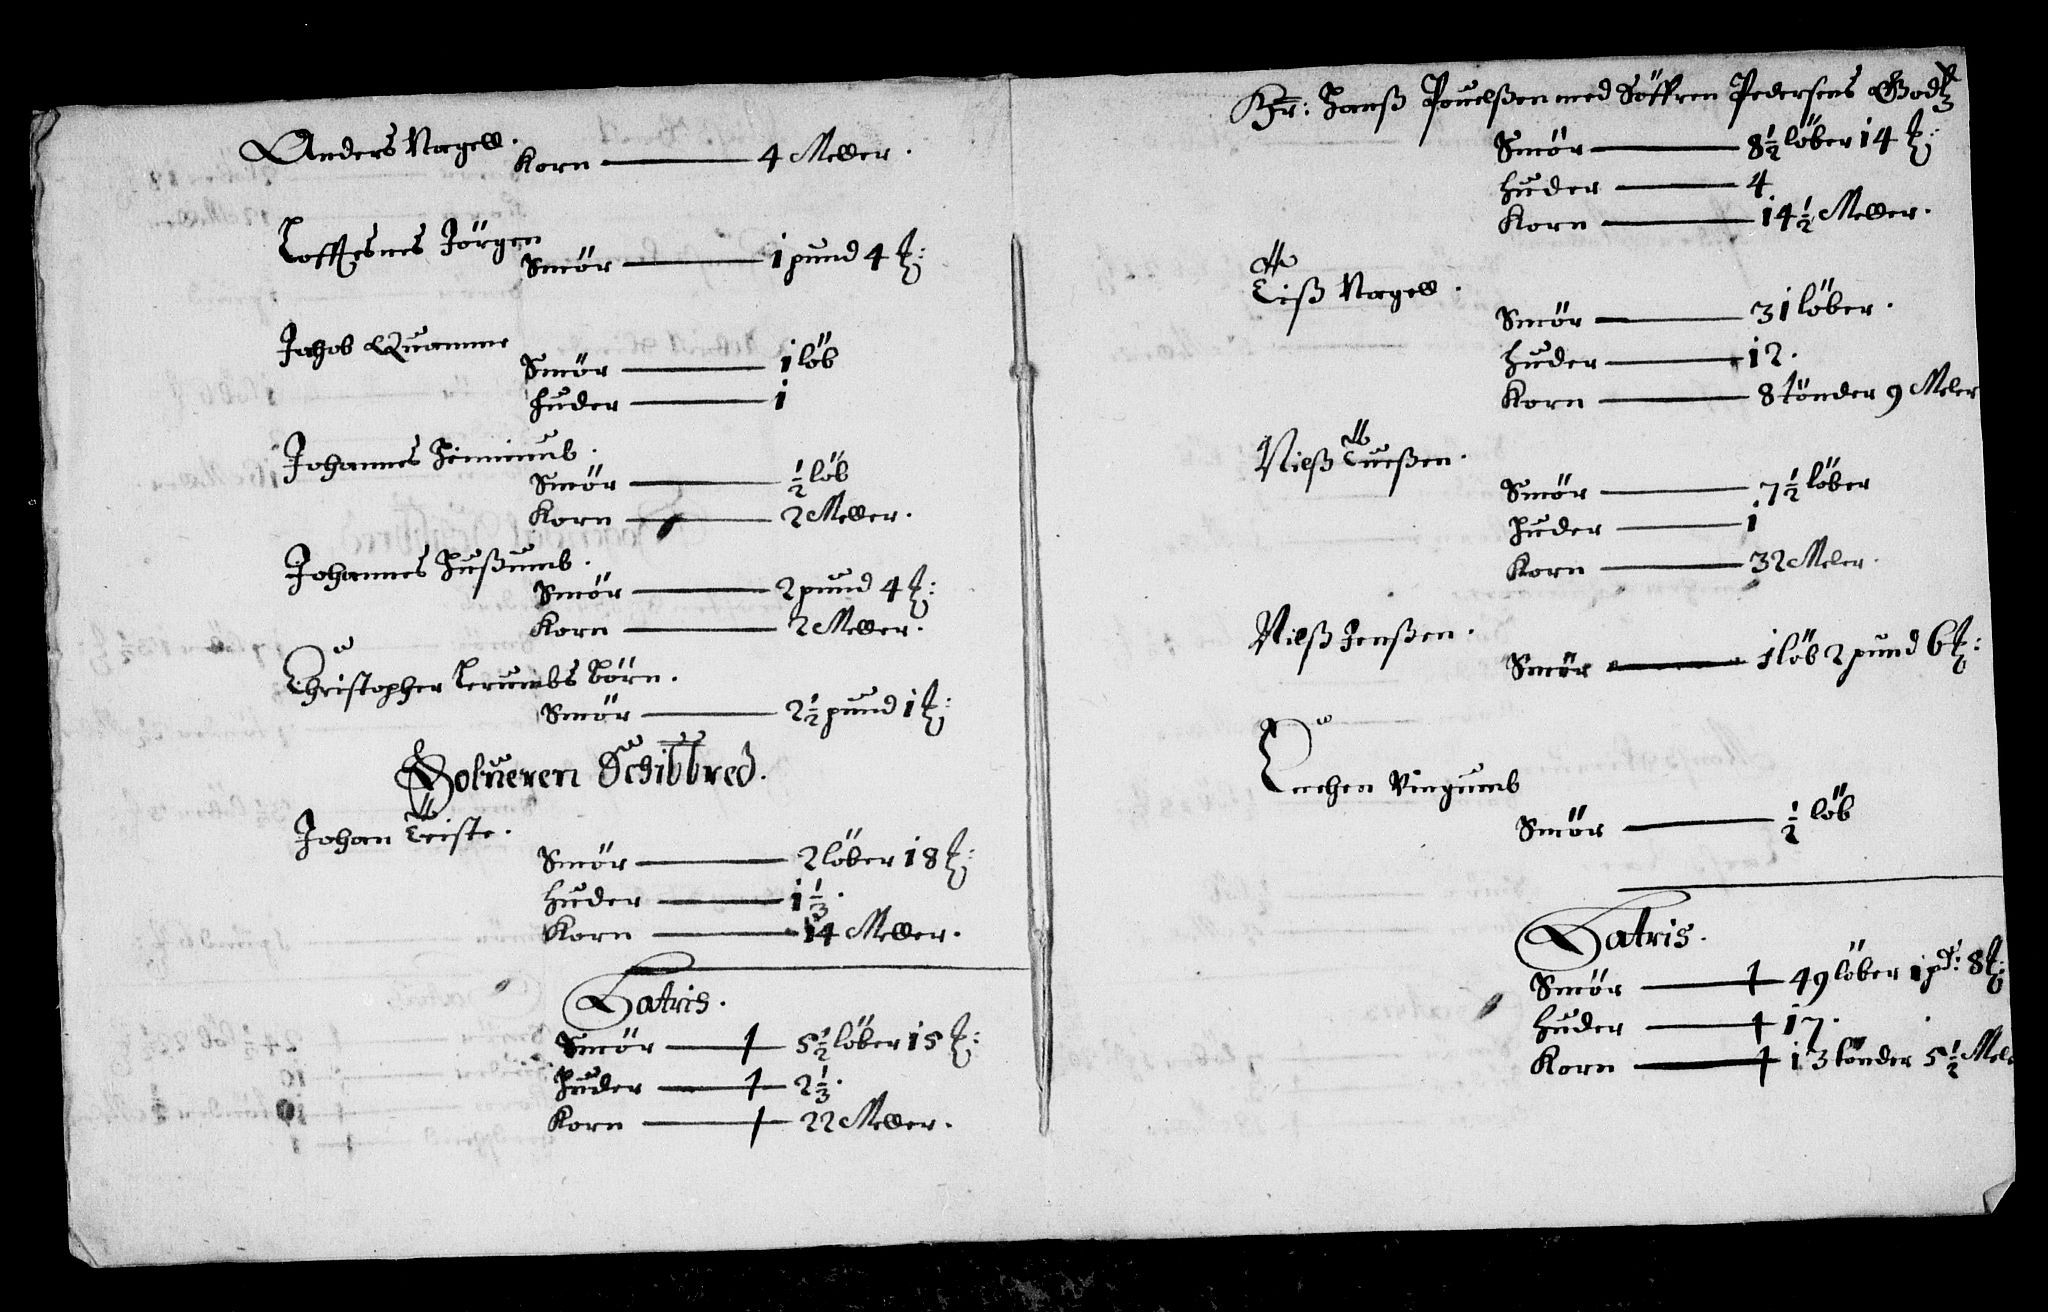 Anders Nagell.
Korn — 4 Meller.
Loftesnes Jörgen
Smör — 1 pund 4 ℔:
Jahob Quamme
Smör — 1 löb
Huder — 1
Johannes Fimmimb.
Smör — ½ löb
Korn — 2 Meller.
Johannes Hußumb.
Smör — 2 pund 4 ℔:
Korn — 2 Meller.
Christopher Lerumbs Börn.
Smör — 2½ pund 1 ℔:
Solueren Schibbred.
Johan Teiste.
Smör — 2 löber 18 ℔:
Huder — 1⅓.
Korn — 14 Meller.
Latris.
Smör — 5½ löber 15 ℔:
Huder — 2⅓.
Korn — 22 Meller.
Hr: Hanß Pouelßen med Söffren Pedersens Godß
Smör — 8½ löber 14 ℔:
Huder — 4
Korn — 14½ Meller.
Tiß Nagell.
Smör — 31 löber.
Huder — 12.
Korn — 8 tönder 9 Meler
Nilß Tueßen.
Smör — 7½ löber
Huder — 1
Korn — 32 Meler.
Nilß Jenßen.
Smör — 1 löb 2 pund 6 ℔:
Enchen Vingumb
Smör — ½ löb
Latris.
Smör — 49 löber 1 pd: 8 ℔:
Huder — 17.
Korn — 13 tönder 5½ Mel